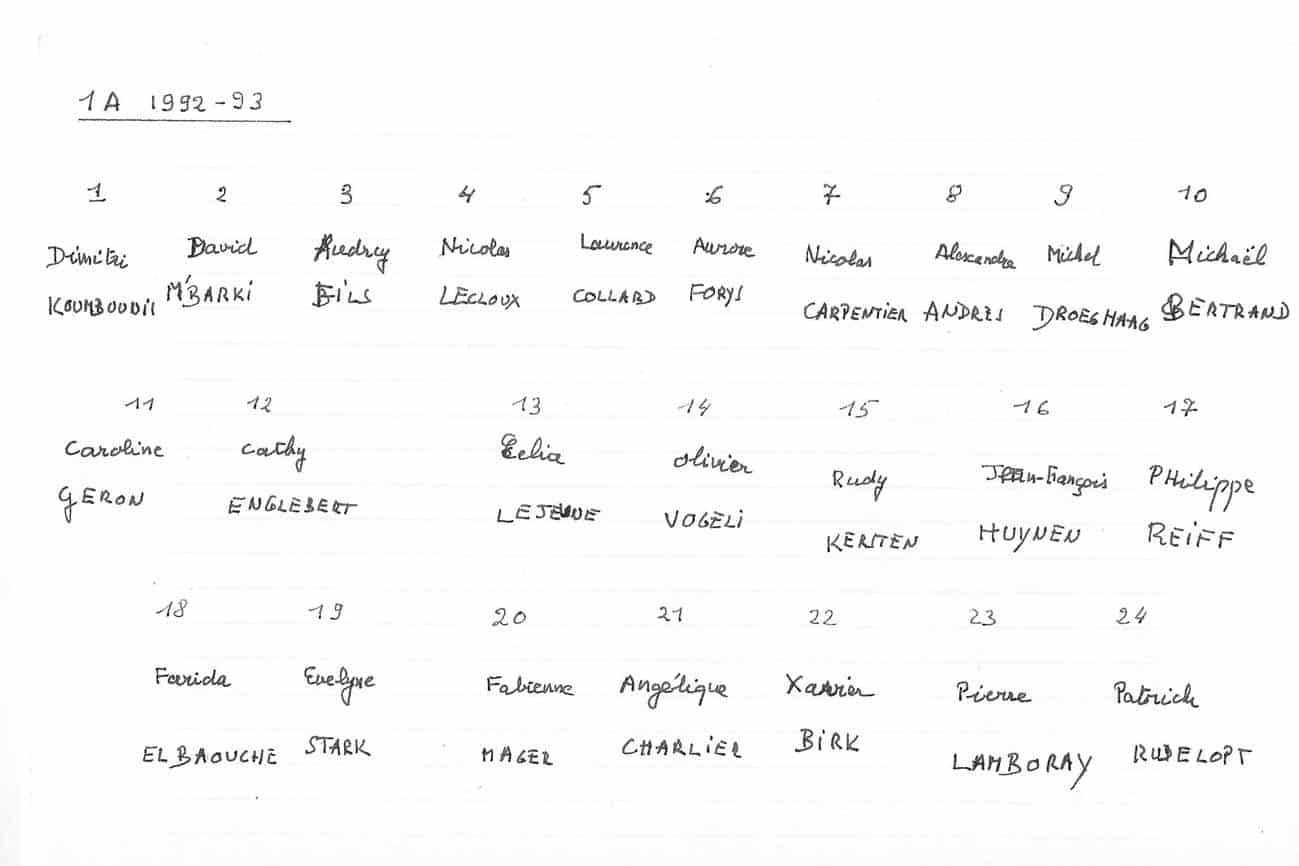 1A 1992-93
1 2 3 4 5 6 7 8 9 10
Dimitri David Audrey Nicolas Laurence Aurore Nicolas Alexandra Michel Michaël
M'BARKI FILS LECLOUX COLLARD FORYS CARPENTIER ANDRES DROEGHAAG BERTRAND
11 12 13 14 15 16 17
Caroline Cathy Celia Olivier Rudy Jean-François PHilippe
GERON ENGLEBERT LEJEUNE VOGELI KERSTEN HUYNEN REIFF
18 19 20 21 22 23 24
Farida Evelyne Fabienne Angélique Xavier Pierre Patrick
EL BAOUCHE STARK MAGER CHARLIER BIRK LAMBORAY RUDELOPT